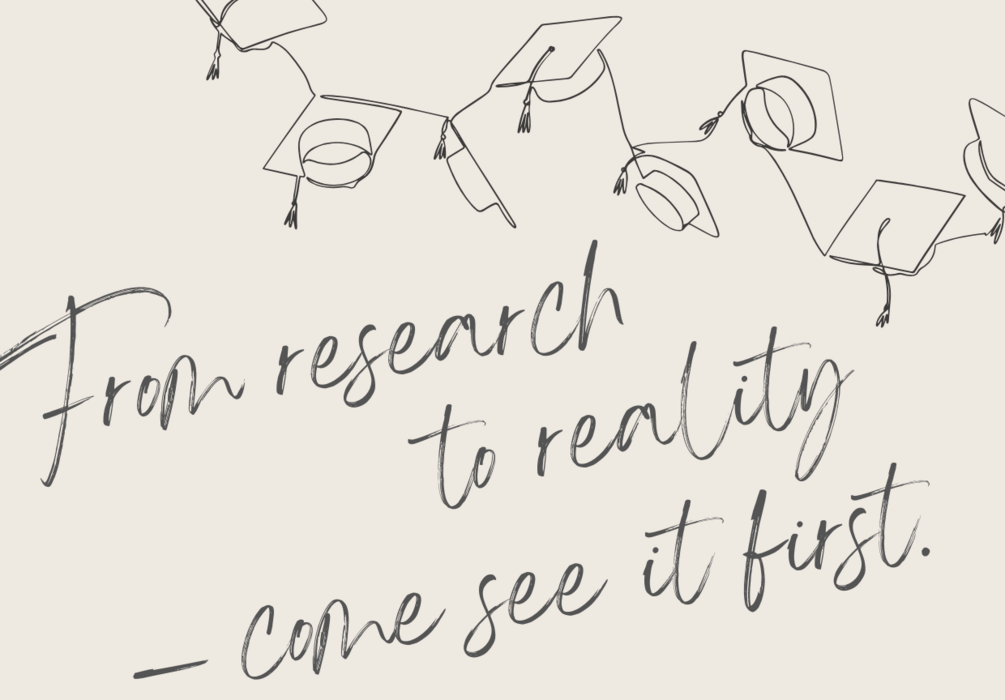 From research
to reality
— come see it first.